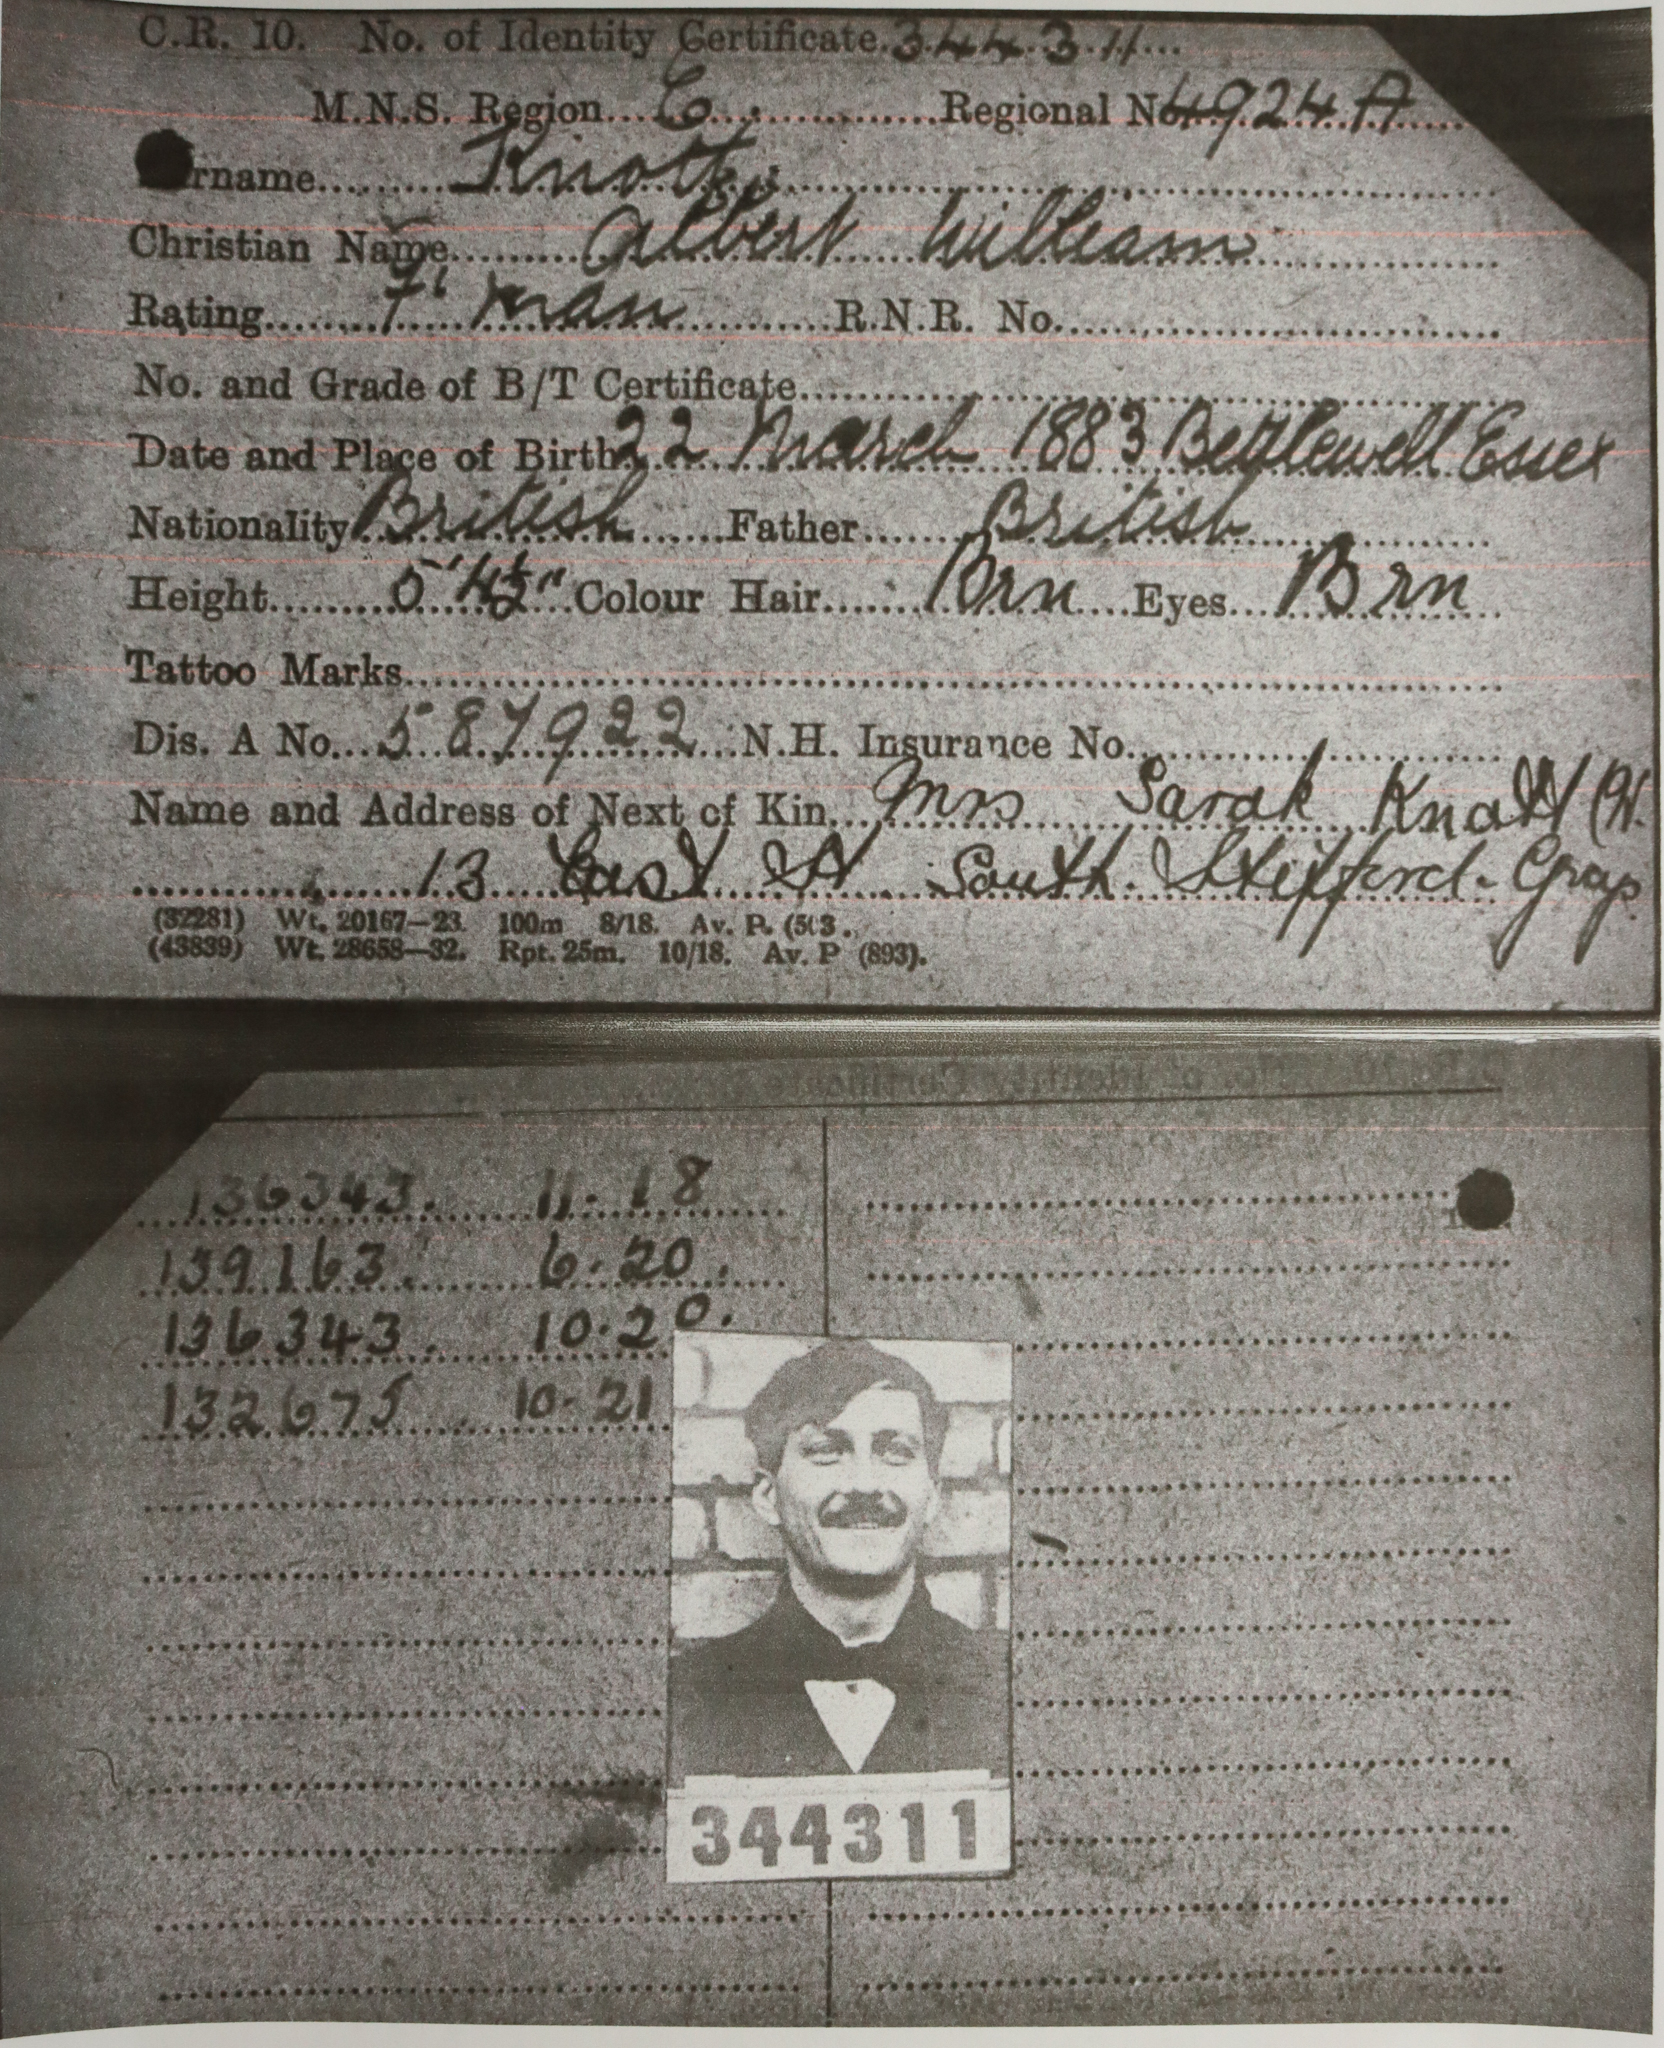 C.R. 10. No. of Identity Certificate. 344311
M.N.S. Region... C. ... Regional No 4924 A
rname... Knott
Christian Name... Albert William
Rating... F'man ... R.N.R. No.
No. and Grade of B/T Certificate
Date and Place of Birth 22 March 1883 Essex
Nationality British ... Father... British
Height... 5' 4½" Colour Hair... Brn ... Eyes... Brn
Tattoo Marks
Dis. A No... 587922 ... N.H. Insurance No.
Name and Address of Next of Kin... Mrs Sarah Knott (W.
13 East St. South Stifford. Grays
(32281) Wt. 20167—23. 100m 8/18. Av. P.
(43839) Wt. 28658—32. Rpt. 25m. 10/18. Av. P (893).
136343. 11.18
139163. 6.20.
136343. 10.20.
132675. 10.21
344311